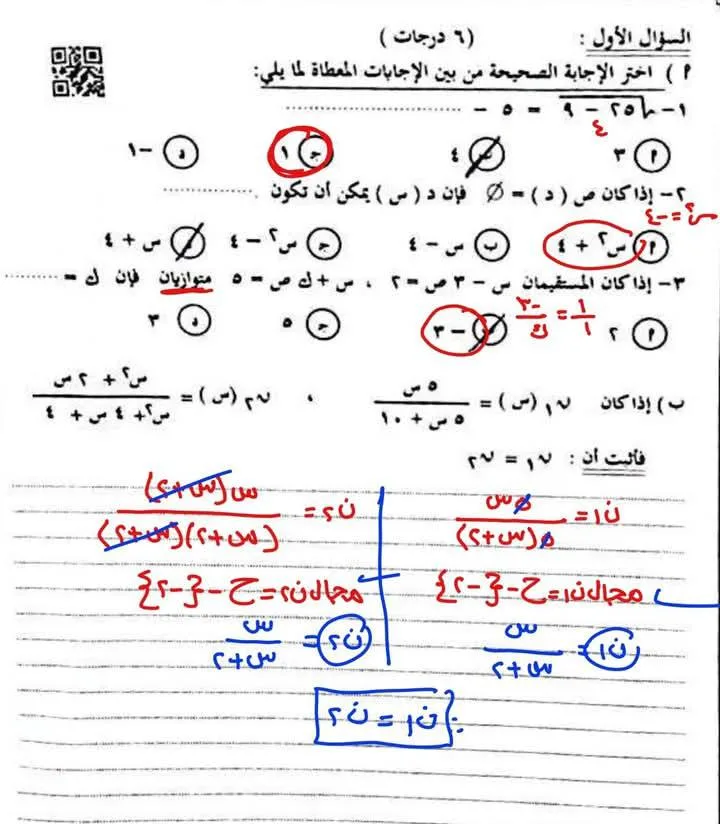 السؤال الأول : ( ٦ درجات )
٢ ) اختر الإجابة الصحيحة من بين الإجابات المعطاة لما يلي:
١- √٢٥ - ٩ = ٥ - ..........
٤
٢ ٣ ب ٤ ج ١ د -١
٢- إذا كان ص ( د ) = ∅ فإن د ( س ) يمكن أن تكون ..........
س٢ = -٤
٢ س٢ + ٤ ب س - ٤ ج س٢ - ٤ د س + ٤
٣- إذا كان المستقيمان س - ٣ ص = ٢ ، س + ك ص = ٥ متوازيان فإن ك = ..........
١/١ = -٣/ك
٢ ٢ ب -٣ ج ٥ د ٣
ب ) إذا كان ن١ (س) = ٥ س / ٥ س + ١٠ ، ن٢ (س) = س٢ + ٢ س / س٢ + ٤ س + ٤
فأثبت أن : ن١ = ن٢
ن١ = ٥س / ٥(س+٢)
مجال ن١ = ح - {-٢}
ن١ = س / س+٢
ن٢ = س(س+٢) / (س+٢)(س+٢)
مجال ن٢ = ح - {-٢}
ن٢ = س / س+٢
∴ ن١ = ن٢